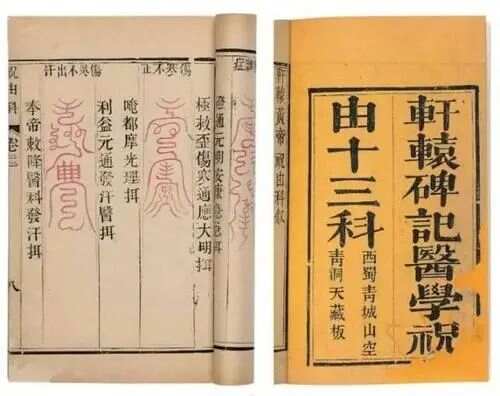 軒轅黃帝祝由科叙
軒轅碑記醫學祝
由十三科
西蜀青城山空
青洞天藏板
傷寒不正
極救歪傷寒通應大明珥
唵都摩光理珥
傷寒不出汗
利益元通發汗醫珥
奉帝敕隆醫科發汗珥
祝由科 卷三
八